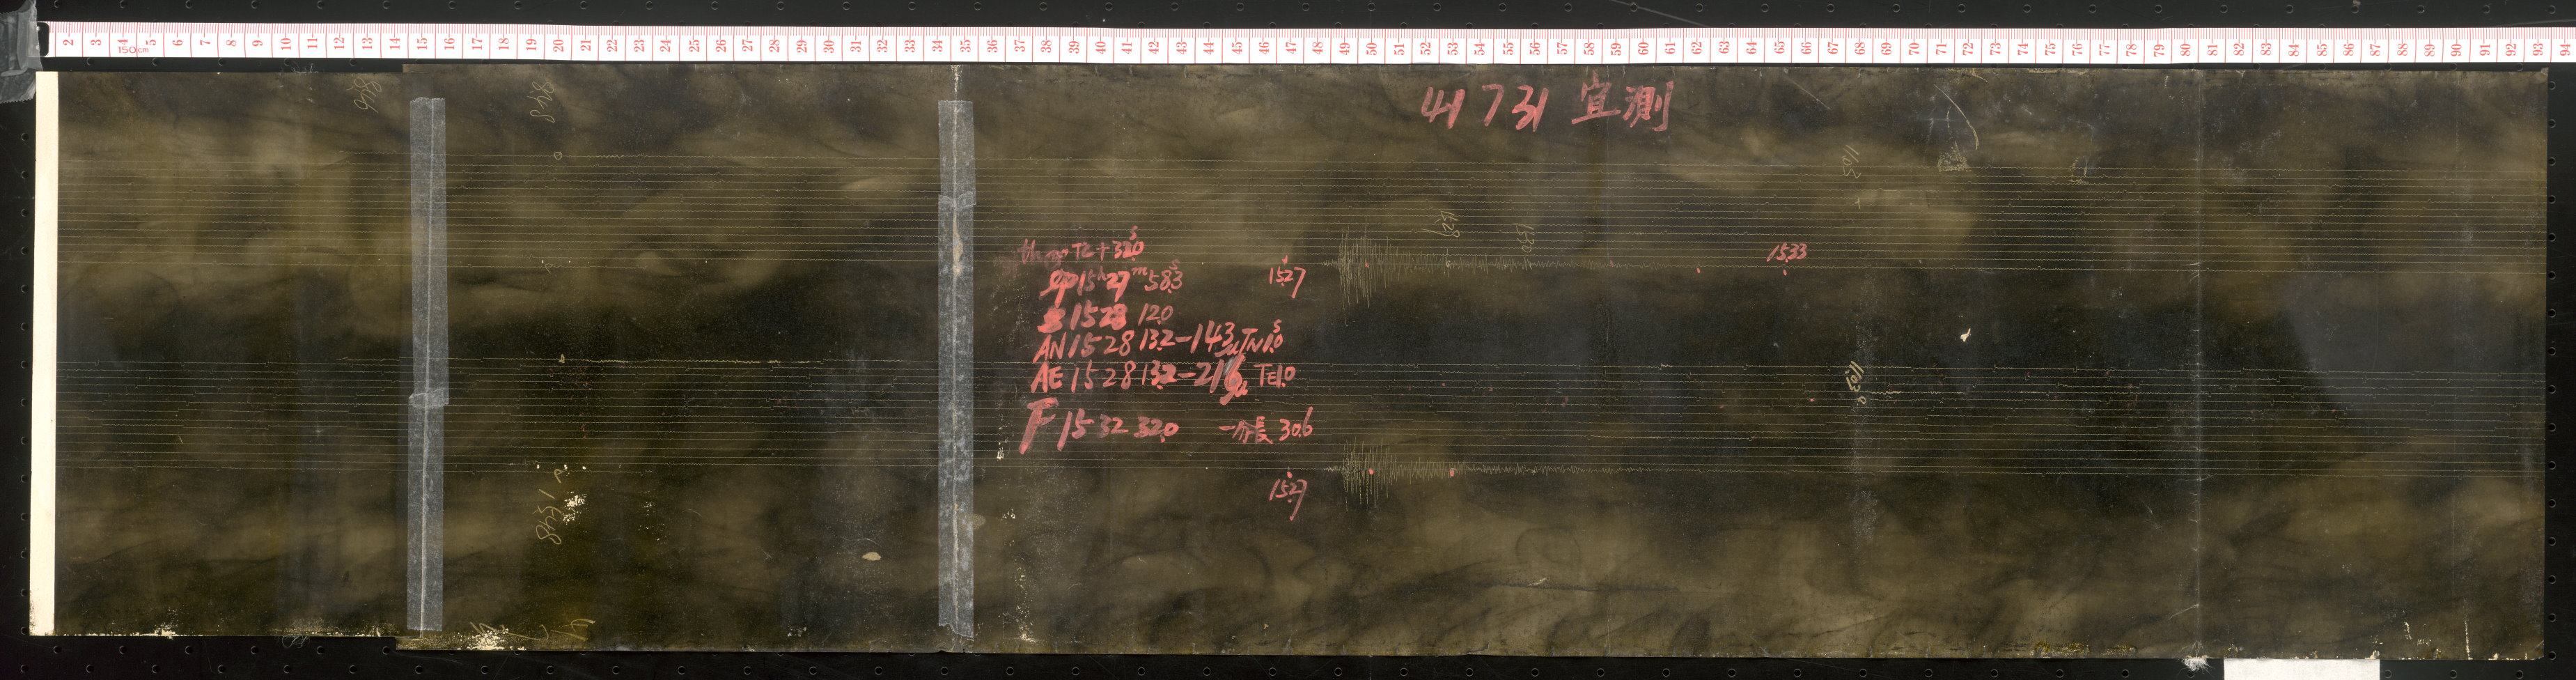 2 3 4 5 6 7 8 9 10 11 12 13 14 15 16 17 18 19 20 21 22 23 24 25 26 27 28 29 30 31 32 33 34 35 36 37 38 39 40 41 42 43 44 45 46 47 48 49 50 51 52 53 54 55 56 57 58 59 60 61 62 63 64 65 66 67 68 69 70 71 72 73 74 75 76 77 78 79 80 81 82 83 84 85 86 87 88 89 90 91 92 93 94
150cm
41 7 31 宜測
848
1103
1528
1530
T2+32.0s
15h27m58.3s
1527
1533
S 1528 12.0
AN 1528 13.2-143μ TN 1.0s
AE 1528 13.2-216μ TE 1.0
1103
F 15 32 32.0 一分長 30.6
1527